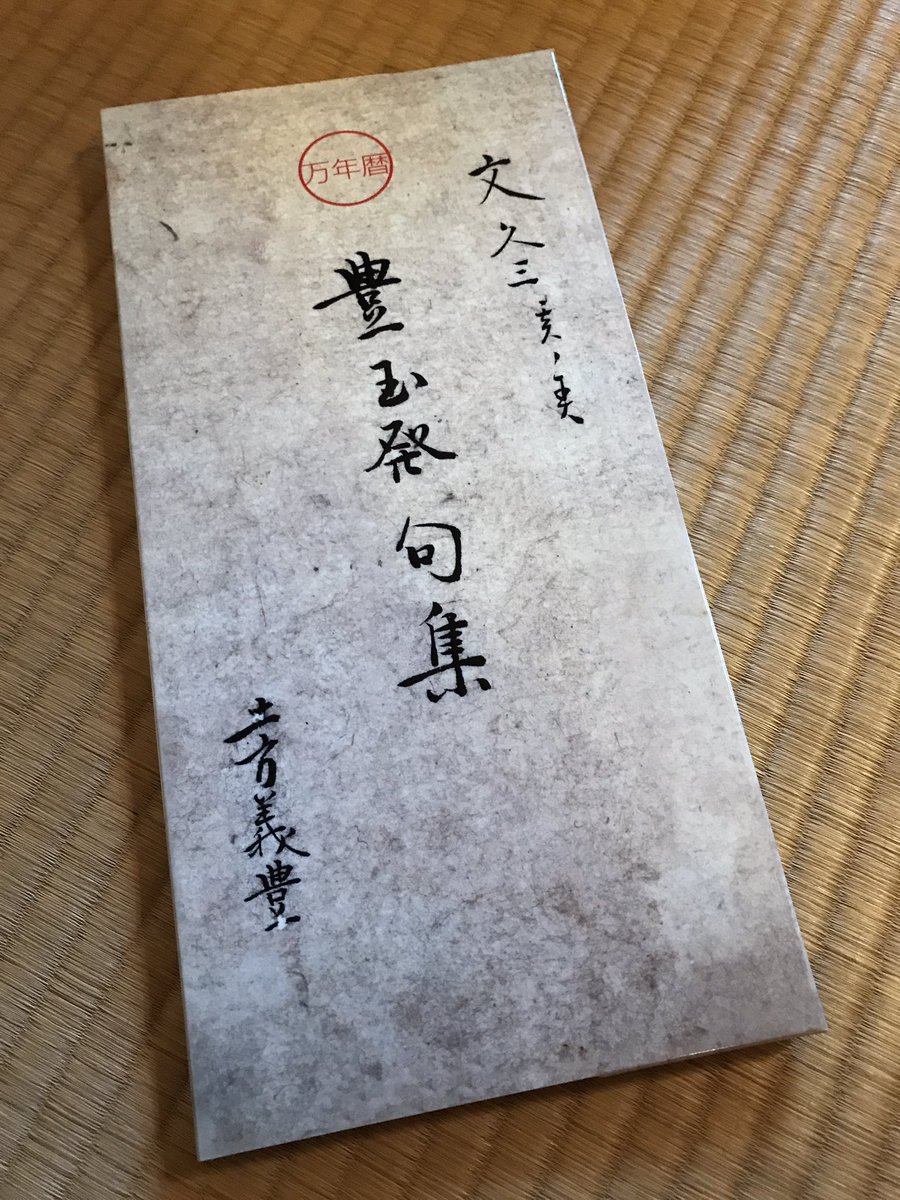 文久三亥ノ春
万年暦
豊玉発句集
土方義豊